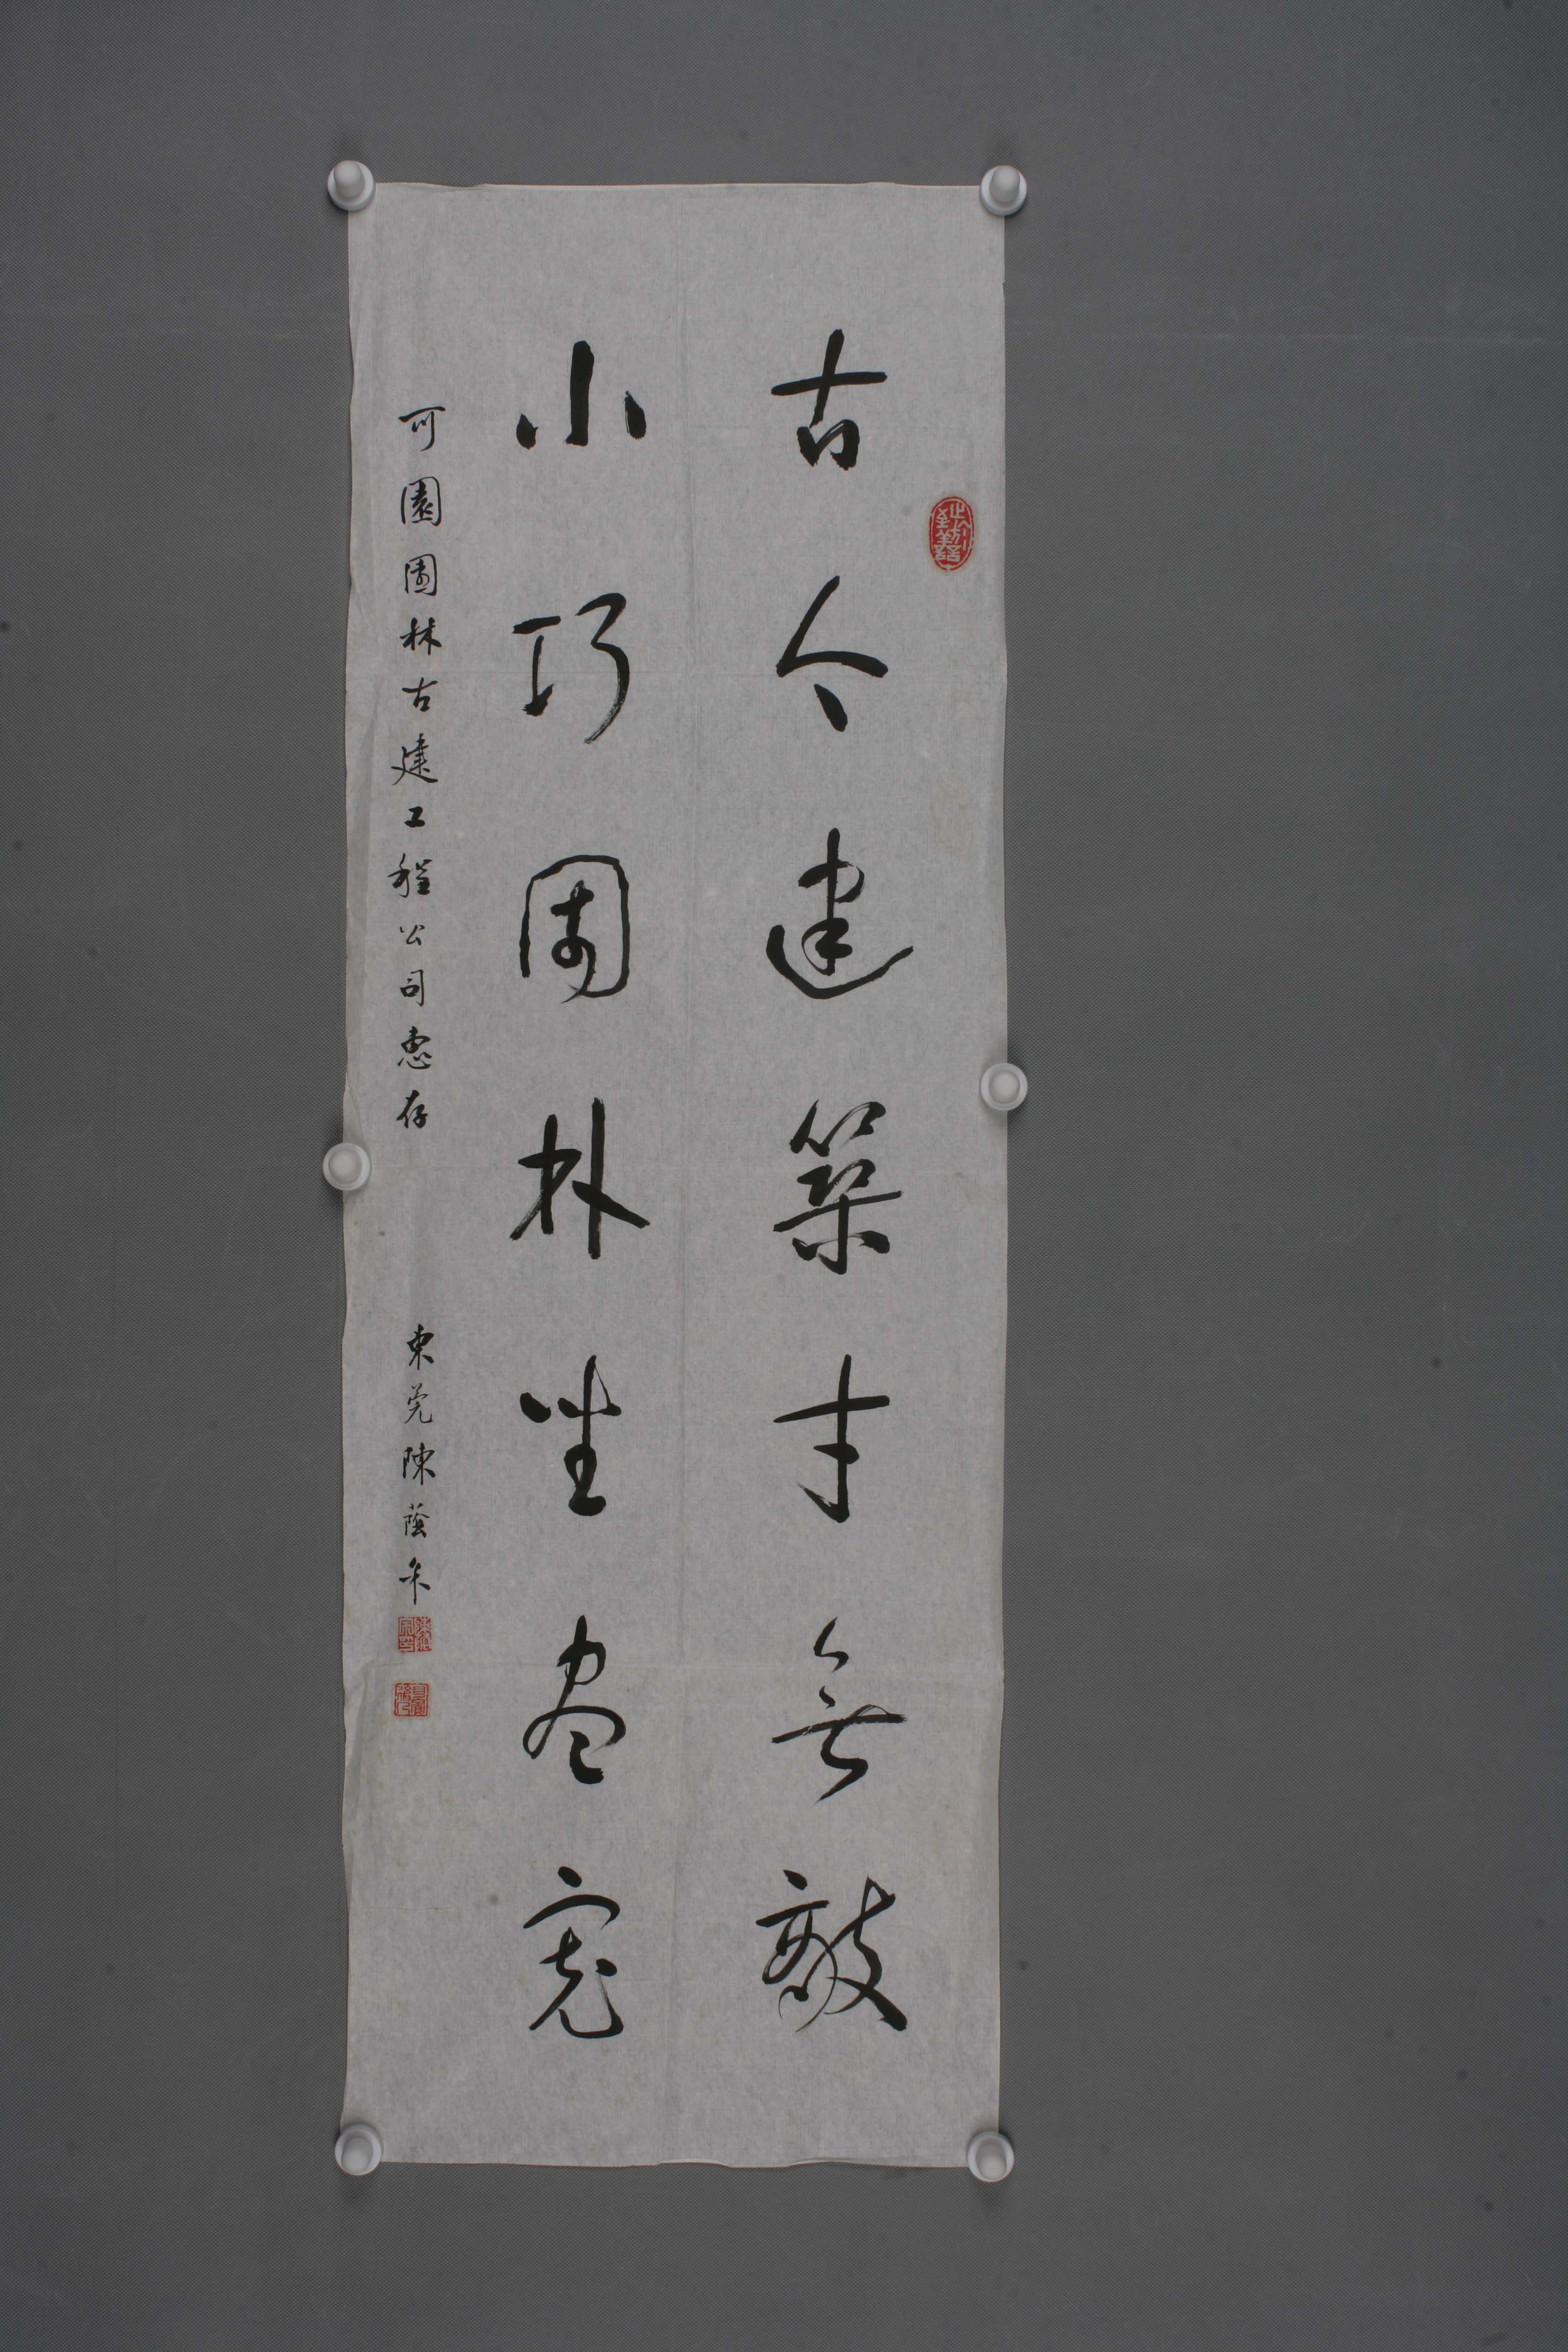 古今建築才無敵
小巧園林坐盡寬
可園園林古建工程公司惠存
東莞陳蔭